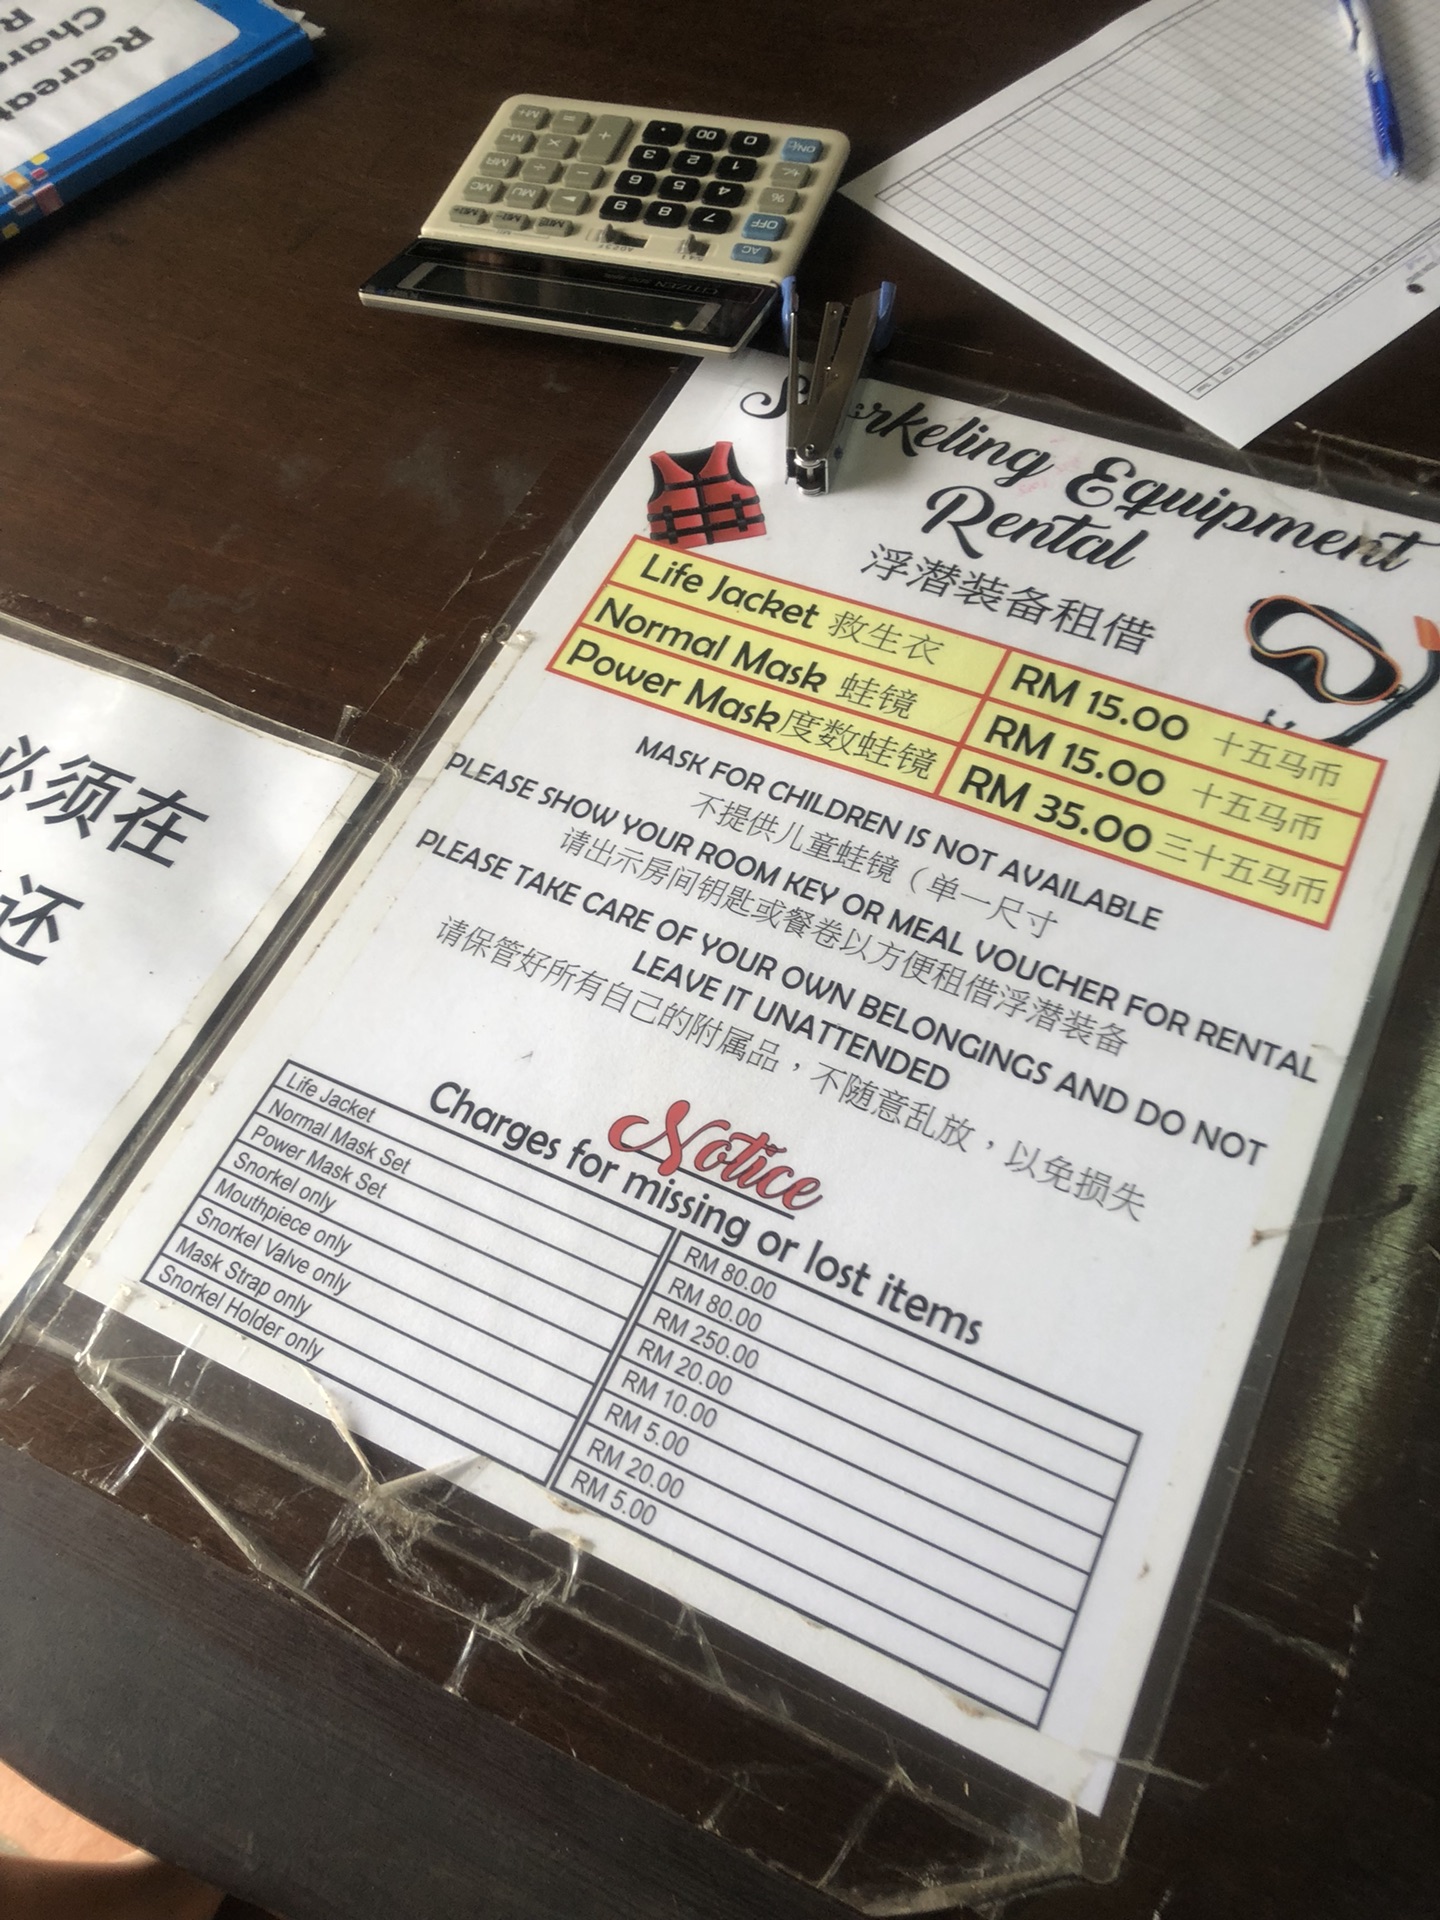 Recreat
Char
R
CITIZEN
M+
=
+
.
00
0
ON/C
M-
×
3
2
1
+/-
MR
÷
−
6
5
4
%
MC
MU
9
8
7
OFF
AC
Equipment
Rental
浮潜装备租借
Life Jacket 救生衣 RM 15.00 十五马币
Normal Mask 蛙镜 RM 15.00 十五马币
Power Mask度数蛙镜 RM 35.00 三十五马币
MASK FOR CHILDREN IS NOT AVAILABLE
不提供儿童蛙镜（单一尺寸
PLEASE SHOW YOUR ROOM KEY OR MEAL VOUCHER FOR RENTAL
请出示房间钥匙或餐卷以方便租借浮潜装备
PLEASE TAKE CARE OF YOUR OWN BELONGINGS AND DO NOT
LEAVE IT UNATTENDED
请保管好所有自己的附属品，不随意乱放，以免损失
Notice
Charges for missing or lost items
Life Jacket RM 80.00
Normal Mask Set RM 80.00
Power Mask Set RM 250.00
Snorkel only RM 20.00
Mouthpiece only RM 10.00
Snorkel Valve only RM 5.00
Mask Strap only RM 20.00
Snorkel Holder only RM 5.00
必须在
还